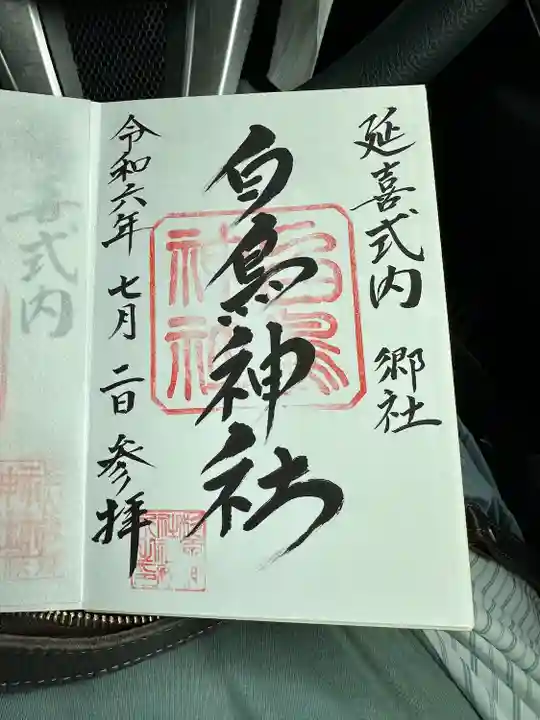 延喜式内 郷社
白鳥神社
令和六年 七月 二日 参拝
白鳥
神社
喜式内